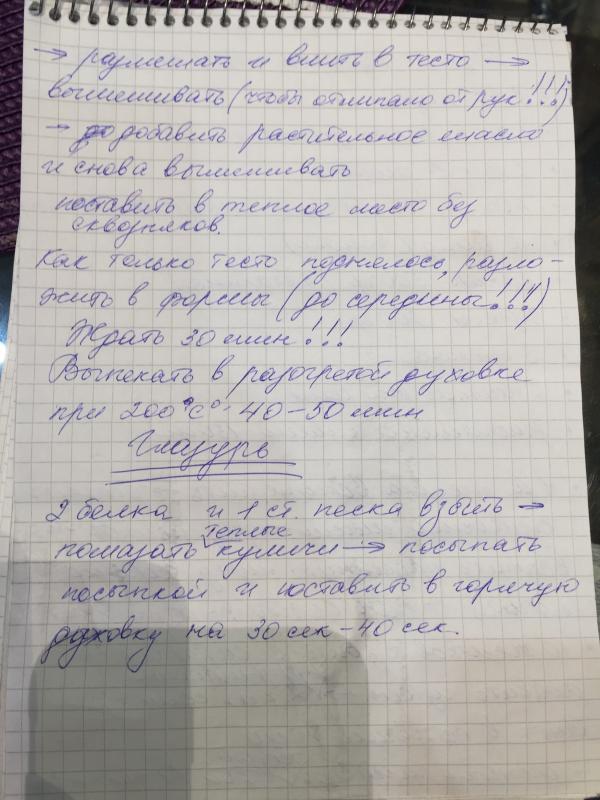 → размешать и влить в тесто →
вымешивать (чтобы отлипало от рук!!!)
→ добавить растительное масло
и снова вымешивать
поставить в теплое место без
сквозняков.
Как только тесто поднялось, разло-
жить в формы (до середины!!!)
Ждать 30 мин!!!
Выпекать в разогретой духовке
при 200°С° 40-50 мин
Глазурь
2 белка и 1 ст. песка взбить →
теплые
помазать куличи → посыпать
посыпкой и поставить в горячую
духовку на 30 сек - 40 сек.